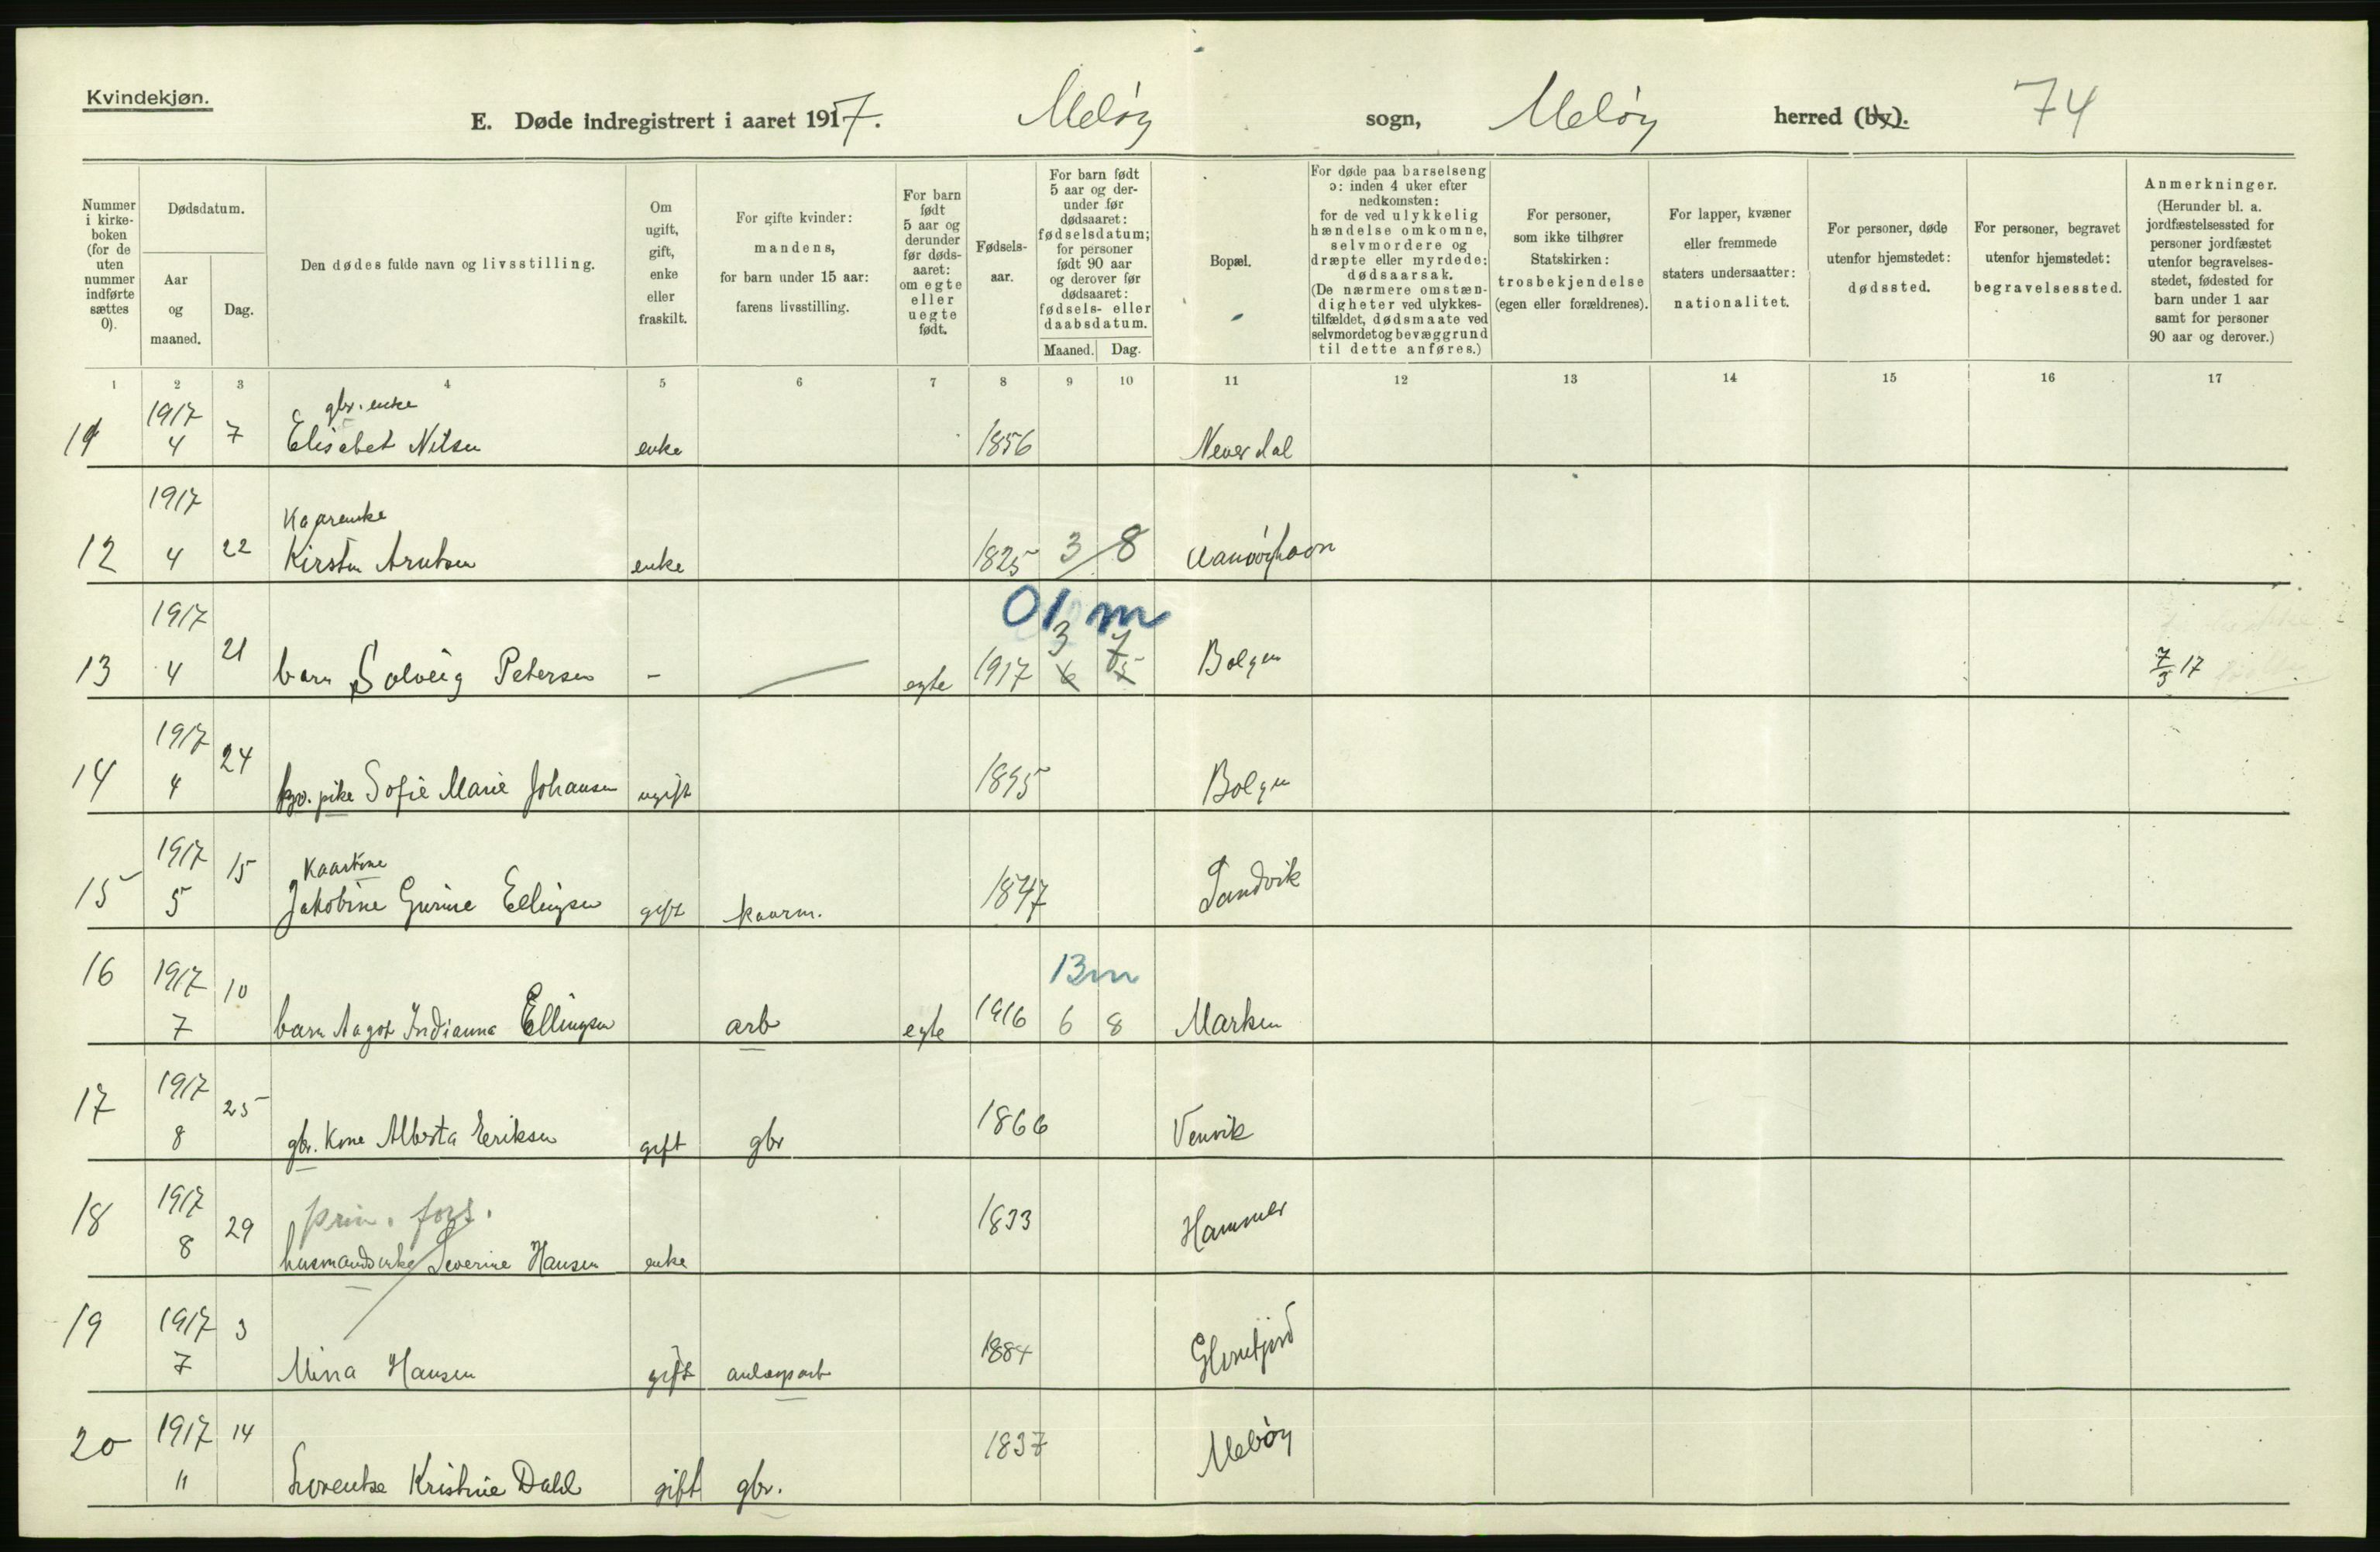 Kvindekjøn.
E. Døde indregistrert i aaret 1917. Meløy sogn, Meløy herred (by). 74
Nummer i kirke-boken (for de uten nummer indførte sættes 0).
Dødsdatum.
Aar og maaned.
Dag.
Den dødes fulde navn og livsstilling.
Om ugift, gift, enke eller fraskilt.
For gifte kvinder: mandens, for barn under 15 aar: farens livsstilling.
For barn født 5 aar og derunder før døds-aaret: om egte eller uegte født.
Fødsels-aar.
For barn født 5 aar og der-under før dødsaaret: fødselsdatum; for personer født 90 aar og derover før dødsaaret: fødsels- eller daabsdatum.
Maaned. Dag.
Bopæl.
For døde paa barselseng ɔ: inden 4 uker efter nedkomsten: for de ved ulykkelig hændelse omkomne, selvmordere og dræpte eller myrdede: dødsaarsak. (De nærmere omstæn-digheter ved ulykkes-tilfældet, dødsmaate ved selvmordet og bevæggrund til dette anføres.)
For personer, som ikke tilhører Statskirken: trosbekjendelse (egen eller forældrenes).
For lapper, kvæner eller fremmede staters undersaatter: nationalitet.
For personer, døde utenfor hjemstedet: dødssted.
For personer, begravet utenfor hjemstedet: begravelsessted.
Anmerkninger. (Herunder bl. a. jordfæstelsessted for personer jordfæstet utenfor begravelses-stedet, fødested for barn under 1 aar samt for personer 90 aar og derover.)
1 2 3 4 5 6 7 8 9 10 11 12 13 14 15 16 17
1917 gbr. enke
11 4 7 Elisabet Nilsen enke 1856 Neverdal
1917 Kaarenke
12 4 22 Kirsten Arntsen enke 1825 3/8
1917 01 m
3 7
13 4 21 barn Solveig Petersen - egte 1917 6 5 Bolgen 7/3 17
1917
14 4 24 pike Sofie Marie Johansen ugift 1895 Bolgen
1917 Kaarkone
15 5 15 Jakobine Gurine Ellingsen gift kaarm. 1847 Sandvik
16 1917 13m
7 10 barn Aagot Indianna Ellingsen arb egte 1916 6 8 Marken
17 1917
8 25 gbr. Kone Alberta Eriksen gift gbr 1866 Venvik
18 1917 prin. fors.
8 29 husmandsenke Severine Hansen enke 1833 Hammer
19 1917
7 3 Mina Hansen gift anlægsarb 1884 Glomfjord
20 1917
11 14 Lorentse Kristine Dahl gift gbr. 1837 Meløy